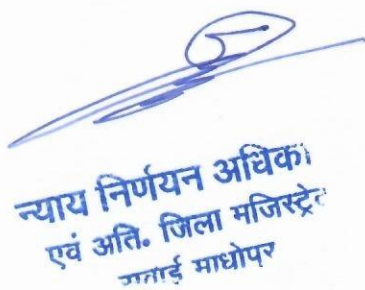 न्याय निर्णयन अधिका
एवं अति. जिला मजिस्ट्रेट
सवाई माधोपुर